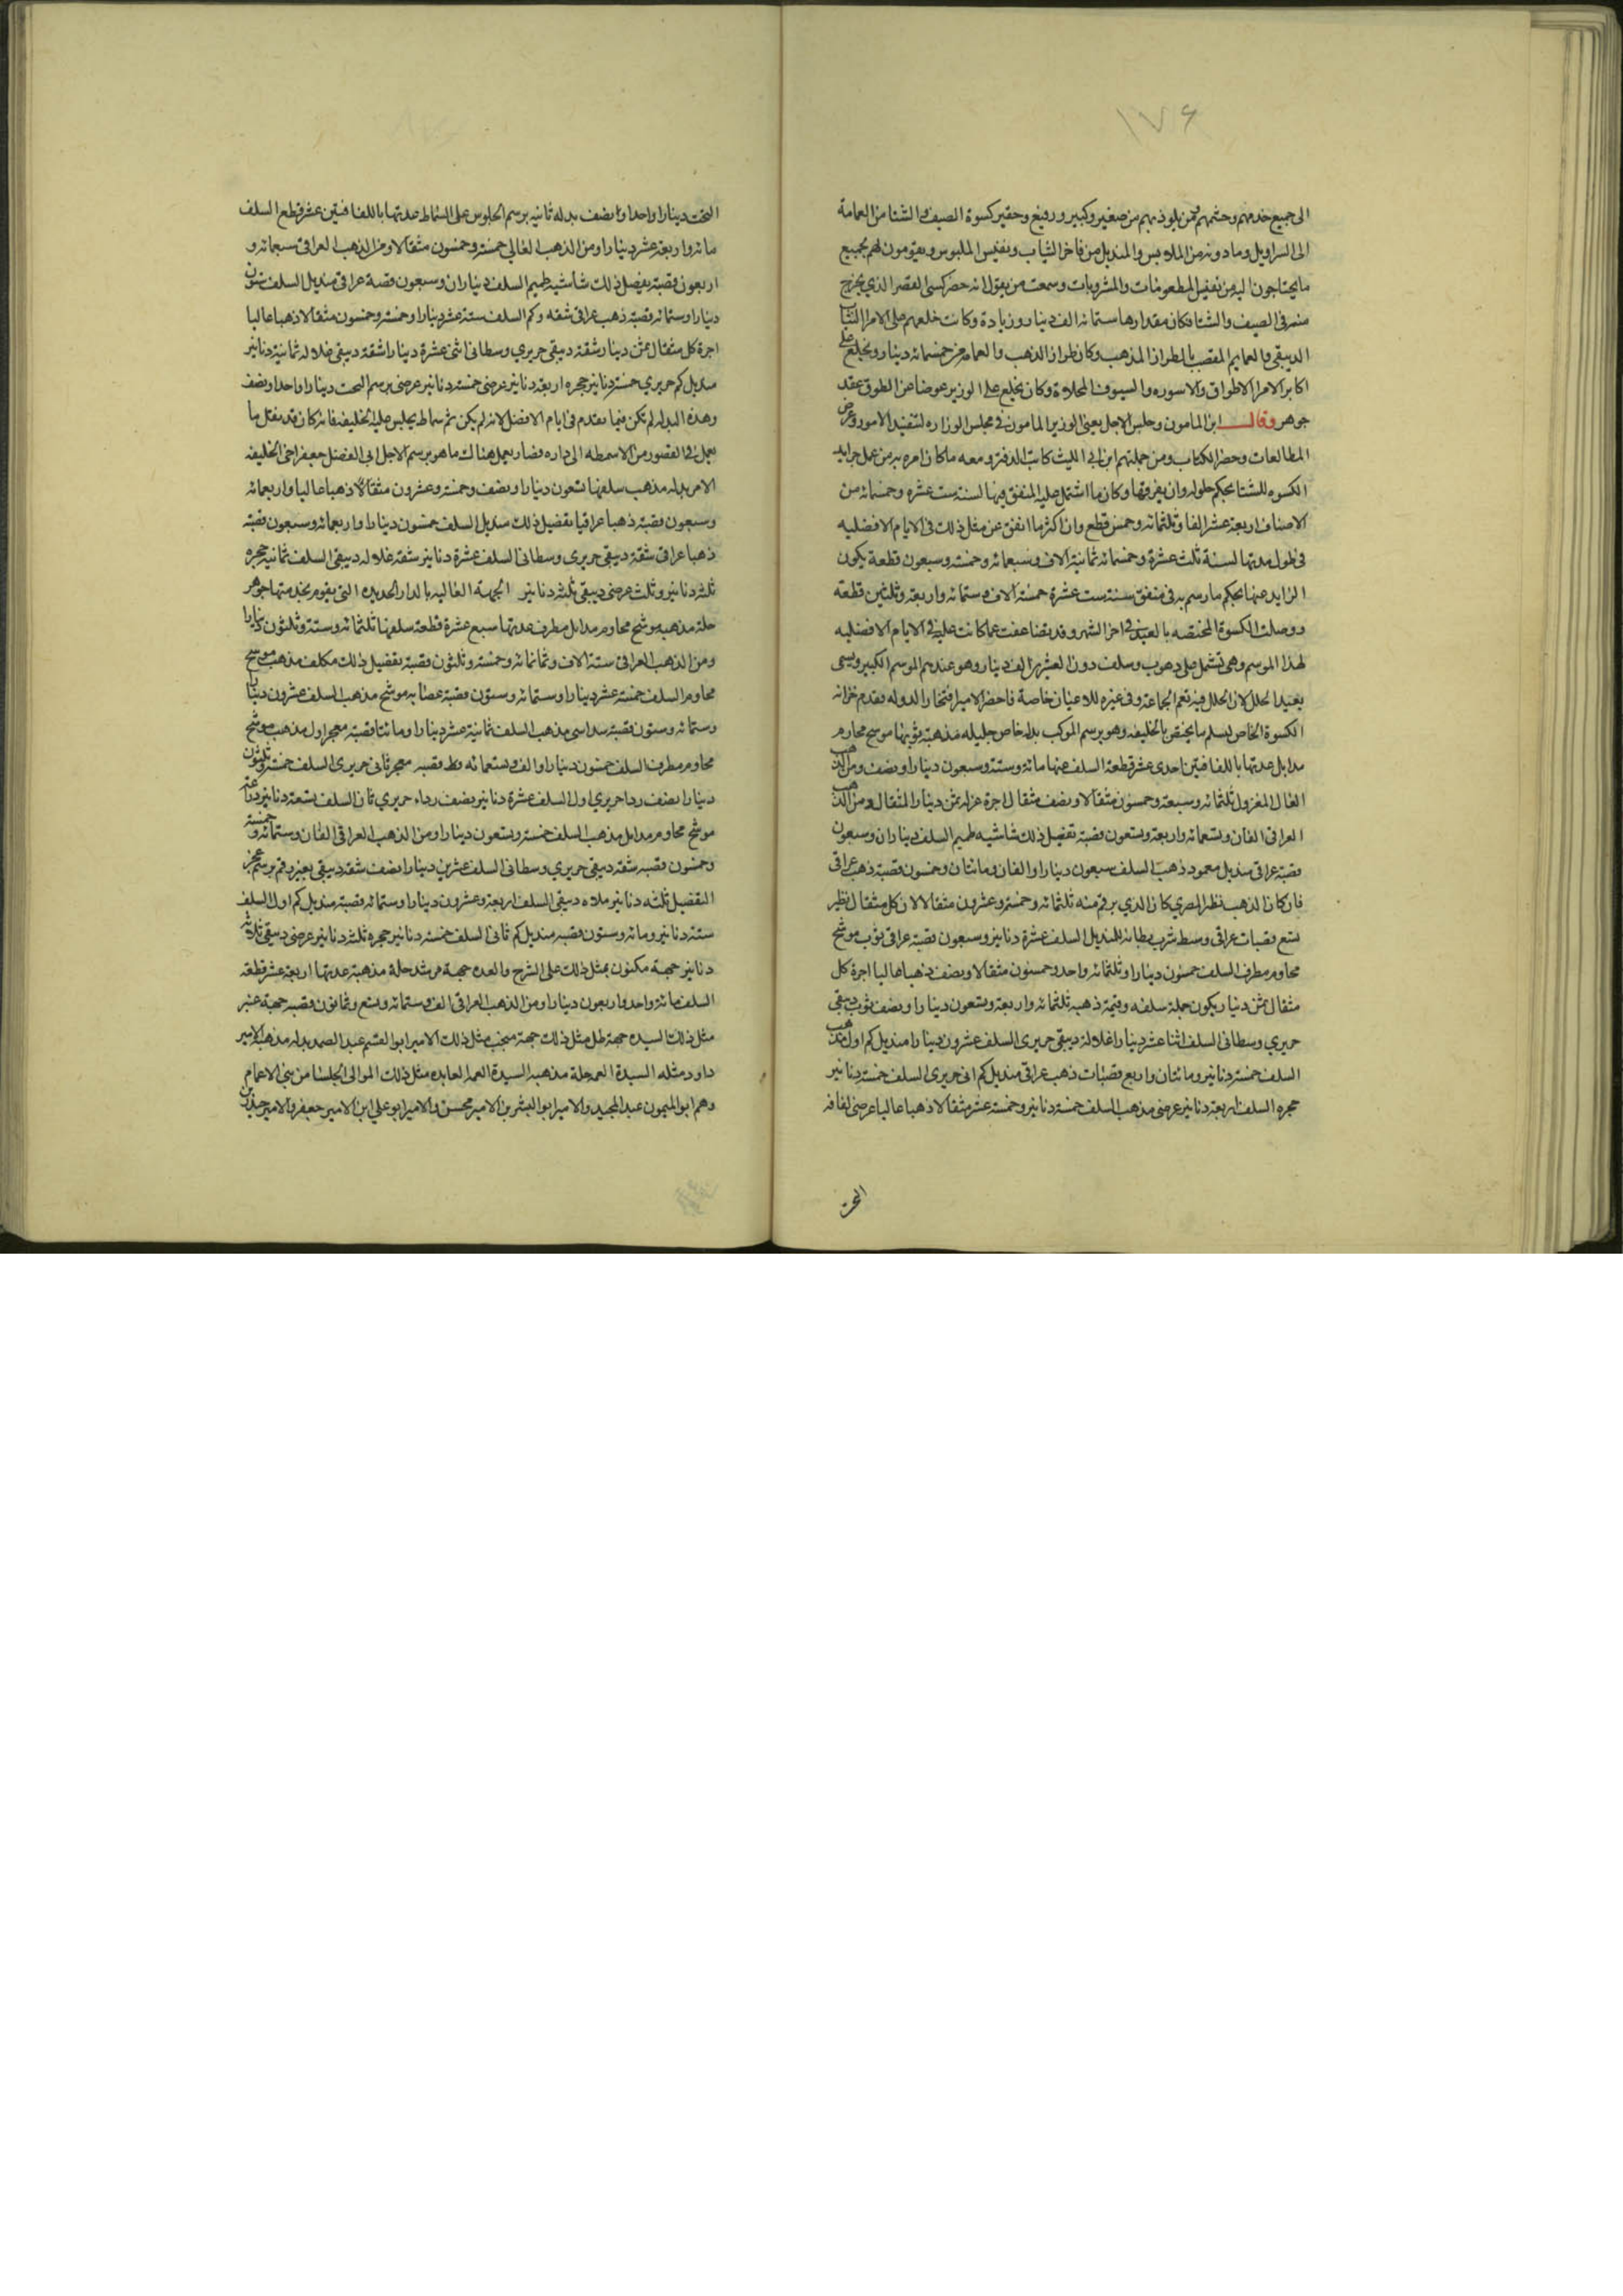 ١٧٦
الى جميع خدمهم وحشمهم ومن يلوذ بهم من صغير وكبير ورفيع وحقير كسوة الصيف والشتا من العمامة
الى السراويل وما دونه من الملابس والمنديل من فاخر الثياب ونفيس الملبوس ويقومون لهم بجميع
ما يحتاجون اليه من نفيس المطعومات والمشروبات وسمعت من يقول انه حضر كسى القصر الذي يخرج
منه في الصيف والشتا فكان مقدارها ستمائه الف دينار وزيادة وكانت خلعهم على الامرا الثياب
الدبيقي والعمايم القصب بالطراز المذهب وكان طراز الذهب والعمامه من خمسمائه دينار ويخلع على
اكابر الامرا الاطواق والاسوره والسيوف المحلاة وكان يخلع على الوزير عوضا عن الطوق عقد
جوهر وقال ابن المامون وجلس الاجل يعني الوزير المامون في مجلس الوزاره لتنفيذ الامور وعرض
المطالعات وحضر الكتاب ومن جملتهم ابن ابي الليث كاتب الدفتر ومعه ما كان امره به من عمل جرايد
الكسوه للشتا بحكم حلوله وان يفرقها وكان ما اشتمل عليه المنفق فيها لسنة ست عشره وخمسمائه من
الاصناف اربعة عشر الفا وثلثمائه وخمس قطع وان اكثر ما انفق عن مثل ذلك في الايام الافضليه
في طول مدتها لسنة ثلث عشرة وخمسمائه ثمانية الاف وسبعمائه وخمسه وسبعون قطعة يكون
الزايد عنها بحكم ما رسم به في منفق سنة ست عشرة خمسة الاف وستمائه واربعة وثلثين قطعة
ووصلت الكسوة المختصه بالعيد في اخر الشهر وقد تضاعفت عما كانت عليه في الايام الافضليه
لهذا الموسم وهي تشتمل على دهوب وسلف دون العشرين الف دينار وهو عندهم الموسم الكبير ويسمى
بعيد الحلل لان الحلل فيه تعم الجماعة وفي غيره للاعيان خاصة فاحضر الامير افتخار الدوله مقدم خزانه
الكسوة الخاص ليسلم ما يختص بالخليفه وهو برسم الموكب بدله خاص جليله مذهبة ثوبها موشح مجاوم
مدايل عدتها باللفافتين احدى عشر قطعة السلف عنها مائة وستة وسبعون دينارا ونصف ومن الذهب
العالي المغزول ثلثمائه وسبعة وخمسون مثقالا ونصف مثقال اجرة غزله ثمن دينار المثقال ومن الذهب
العراقي الفان وتسعمائه واربعة وتسعون قصبة تفصيل ذلك شاشيه طميم السلف ديناران وسبعون
قصبة عراقي منديل بعمود ذهب السلف سبعون دينارا والفان ومائتان وخمسون قصبة ذهب عراقي
فان كان الذهب نظير المصري كان الذي يرقم منه ثلثمائه وخمسه وعشرون مثقالا لان كل مثقال نظير
تسع قصبات عراقي وسط شرب بطانه للمنديل السلف عشرة دنانير وسبعون قصبة عراقي ثوب موشح
مجاوم مطرف السلف خمسون دينارا وثلثمائه واحد وخمسون مثقالا ونصف ذهبا عاليا اجرة كل
مثقال ثمن دينار يكون جملة سلفه وقيمة ذهبه ثلثمائه واربعة وتسعون دينارا ونصف ثوب دبيقي
حريري وسطاني السلف اثنا عشر دينارا غلالة دبيقي حريري السلف عشرون دينارا منديل كم اول مذهب
السلف خمسة دنانير ومائتان واربع قصبات ذهب عراقي منديل كم ثاني حريري السلف خمسة دنانير
حجره السلف اربعة دنانير عرضي مذهب السلف خمسة دنانير وخمسة عشر مثقالا ذهبا عاليا عرضي لفافه
التخت
التخت دينارا واحدا ونصف بدله ثانيه برسم الجلوس على السماط عدتها باللفافتين عشر قطع السلف
مائه واربعة عشر دينارا ومن الذهب العالي خمسة وخمسون مثقالا ومن الذهب العراقي سبعمائه و
اربعون قصبة تفصيل ذلك شاشيه طميم السلف ديناران وسبعون قصبة عراقي منديل السلف ستون
دينارا وستمائه قصبة ذهب عراقي شقه وكم السلف ستة عشر دينارا وخمسه وخمسون مثقالا ذهبا عاليا
اجرة كل مثقال ثمن دينار شقة دبيقي حريري وسطاني اثني عشرة دينارا شقة دبيقي غلاله ثمانية دنانير
منديل كم حريري خمسة دنانير حجره اربعة دنانير عرضي خمسة دنانير عرضي برسم التخت دينارا واحدا ونصف
وهذه البدله لم تكن فيما تقدم في ايام الافضل لانه لم يكن ثم سماط يجلس عليه الخليفه فانه كان قد نقل ما
يعمل في القصور من الاسمطه الى داره فصار يعمل هناك ما هو برسم الاجل ابي الفضل جعفر اخي الخليفه
الامر بدله مذهب سلفها تسعون دينارا ونصف وخمسة وعشرون مثقالا ذهبا عاليا واربعمائه
وسبعون قصبة ذهبا عراقيا تفصيل ذلك منديل السلف خمسون دينارا واربعمائه وسبعون قصبة
ذهبا عراقي شقة دبيقي حريري وسطاني السلف عشرة دنانير شقة غلاله دبيقي السلف ثمانيه حجره
ثلثه دنانير وثلث عرضي دبيقي ثلثه دنانير الجهة العاليه بالدار الجديده التي يقوم بخدمتها جوهر
حلة مذهبه موشح مجاوم مدايل مطرف عدتها سبع عشرة قطعة سلفها ثلثمائه وستة وثلثون دينارا
ومن الذهب العراقي ستة الاف وثمانمائه وخمسة وثلثون قصبة تفصيل ذلك مكلف مذهب موشح
مجاوم السلف خمسة عشر دينارا وستمائه وستون قصبة عصابه موشح مذهب السلف عشرون دينارا
وستمائه وستون قصبة سداسي مذهب السلف ثمانية عشر دينارا ومائتا قصبة معجر اول مذهب موشح
مجاوم مطرف السلف خمسون دينارا والف وتسعمائه قصبه معجر ثاني حريري السلف خمسة وثلثون
دينارا نصف ردا حريري اول السلف عشرة دنانير نصف رداء حريري ثان السلف تسعة دنانير دراعة
موشح مجاوم مدايل مذهب السلف خمسة وتسعون دينارا ومن الذهب العراقي الفان وستمائه وخمسة
وخمسون قصبه شقة دبيقي حريري وسطاني السلف عشرين دينارا نصف شقة دبيقي بغير رقم برسم عجز
التفصيل ثلثه دنانير ملاه دبيقي السلف اربعة وعشرون دينارا وستمائه قصبة منديل كم اول السلف
ستة دنانير ومائه وستون قصبه منديل كم ثاني السلف خمسة دنانير حجره ثلثه دنانير عرضي دبيقي ثلاثه
دنانير جهة مكنون بمثل ذلك على الشرح والعده جهة مرشد حلة مذهبة عدتها اربعة عشر قطعة
السلف مائة واحد واربعون دينارا ومن الذهب العراقي الف وستمائه وتسع وثمانون قصبه جهة عنبر
مثل ذلك السيده جهة ظل مثل ذلك جهة منجب مثل ذلك الامير ابو القسم عبد الصمد بدله مذهب الامير
داود مثله السيدة العمه حلة مذهبه السيدة العمه العابده مثل ذلك الموالي الجلسا من بني الاعمام
وهم ابو الميمون عبد المجيد والامير ابو اليسر بن الامير محسن والامير ابو علي ابن الامير جعفر والامير حيدره بن